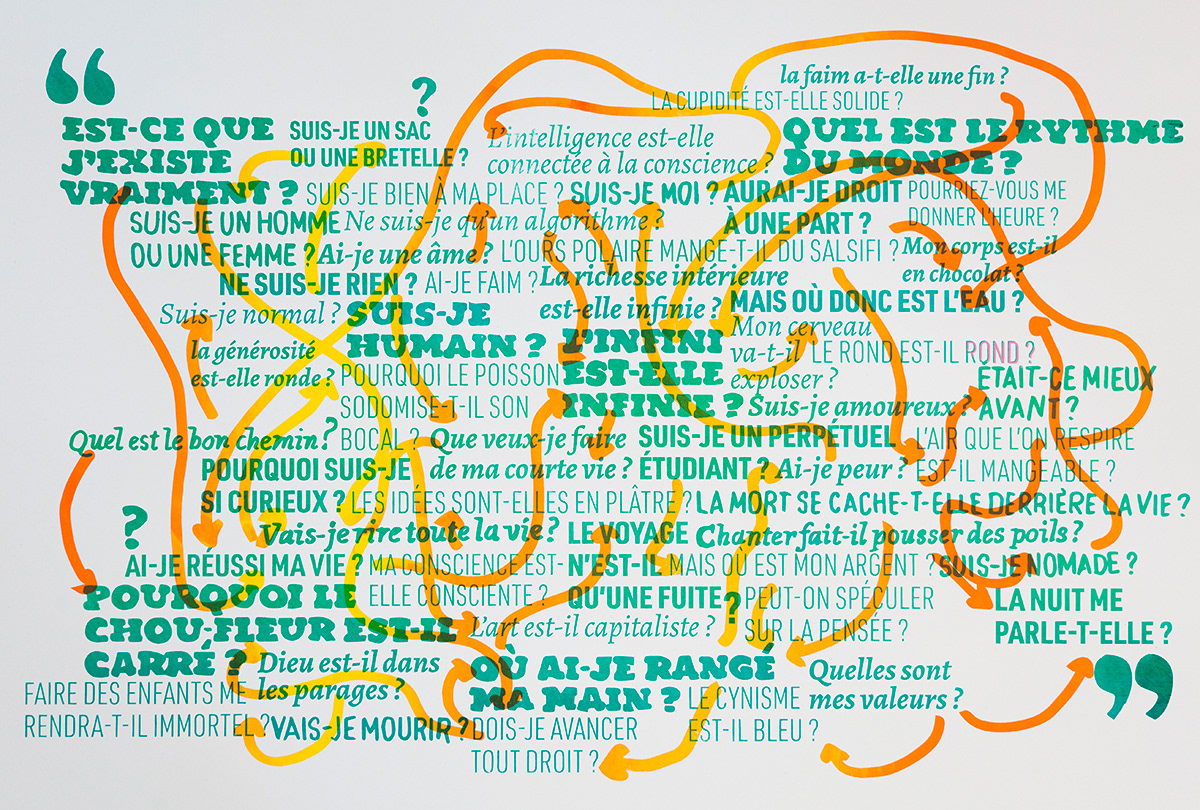 “
la faim a-t-elle une fin ?
LA CUPIDITÉ EST-ELLE SOLIDE ?
?
EST-CE QUE
J'EXISTE
VRAIMENT ?
SUIS-JE UN SAC
OU UNE BRETELLE ?
L'intelligence est-elle
connectée à la conscience ?
QUEL EST LE RYTHME
DU MONDE ?
SUIS-JE BIEN À MA PLACE ?
SUIS-JE MOI ?
AURAI-JE DROIT
À UNE PART ?
POURRIEZ-VOUS ME
DONNER L'HEURE ?
SUIS-JE UN HOMME
OU UNE FEMME ?
Ne suis-je qu'un algorithme ?
Ai-je une âme ?
L'OURS POLAIRE MANGE-T-IL DU SALSIFI ?
Mon corps est-il
en chocolat ?
NE SUIS-JE RIEN ?
AI-JE FAIM ?
La richesse intérieure
est-elle infinie ?
MAIS OÙ DONC EST L'EAU ?
Suis-je normal ?
SUIS-JE
HUMAIN ?
L'INFINI
EST-ELLE
INFINIE ?
Mon cerveau
va-t-il
exploser ?
LE ROND EST-IL ROND ?
la générosité
est-elle ronde ?
POURQUOI LE POISSON
SODOMISE-T-IL SON
BOCAL ?
ÉTAIT-CE MIEUX
AVANT ?
Suis-je amoureux ?
Quel est le bon chemin ?
Que veux-je faire
de ma courte vie ?
SUIS-JE UN PERPÉTUEL
ÉTUDIANT ?
L'AIR QUE L'ON RESPIRE
EST-IL MANGEABLE ?
POURQUOI SUIS-JE
SI CURIEUX ?
Ai-je peur ?
LES IDÉES SONT-ELLES EN PLÂTRE ?
LA MORT SE CACHE-T-ELLE DERRIÈRE LA VIE ?
?
Vais-je rire toute la vie ?
LE VOYAGE
N'EST-IL
QU'UNE FUITE ?
Chanter fait-il pousser des poils ?
AI-JE RÉUSSI MA VIE ?
MA CONSCIENCE EST-
ELLE CONSCIENTE ?
MAIS OÙ EST MON ARGENT ?
SUIS-JE NOMADE ?
POURQUOI LE
CHOU-FLEUR EST-IL
CARRÉ ?
PEUT-ON SPÉCULER
SUR LA PENSÉE ?
LA NUIT ME
PARLE-T-ELLE ?
L'art est-il capitaliste ?
Dieu est-il dans
les parages ?
OÙ AI-JE RANGÉ
MA MAIN ?
Quelles sont
mes valeurs ?
FAIRE DES ENFANTS ME
RENDRA-T-IL IMMORTEL ?
VAIS-JE MOURIR ?
DOIS-JE AVANCER
TOUT DROIT ?
LE CYNISME
EST-IL BLEU ?
”